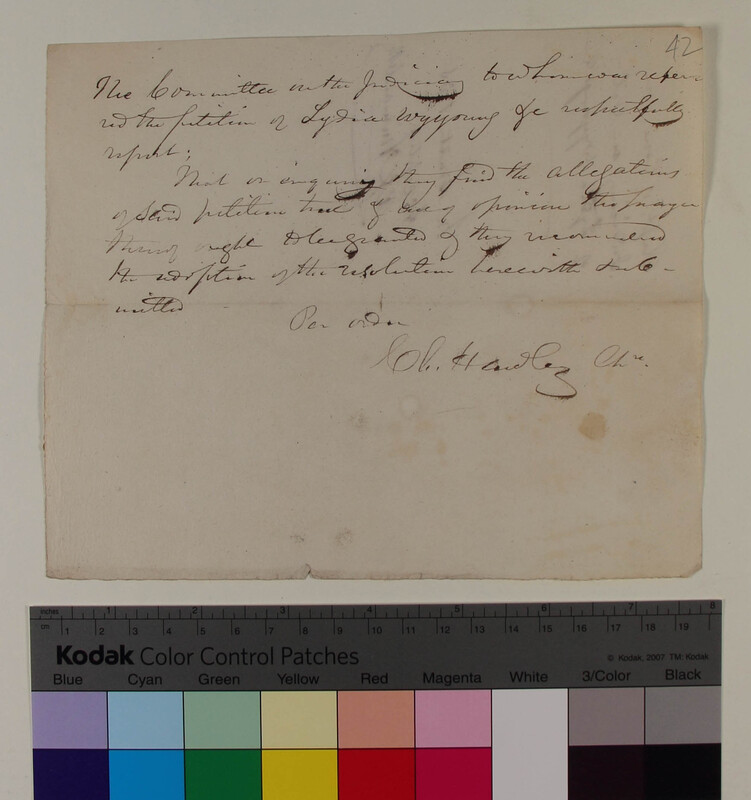 42
The Committee on the Judiciary to whom was refer
red the petition of Lydia Wyyoung &c respectfully
report;
That on enquiring they find the allegations
of said petition true & are of opinion the prayer
thereof ought to be granted & they recommend
the adoption of the resolution herewith sub-
mitted
Per order
Ch. Handley Chn.
inches 1 2 3 4 5 6 7 8
cm 1 2 3 4 5 6 7 8 9 10 11 12 13 14 15 16 17 18 19
Kodak Color Control Patches © Kodak, 2007 TM: Kodak
Blue Cyan Green Yellow Red Magenta White 3/Color Black